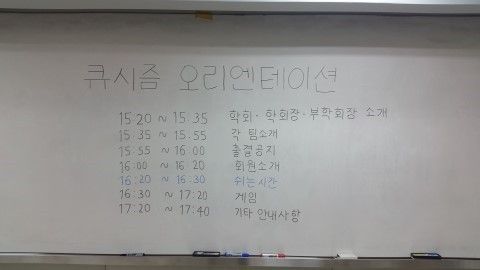 큐시즘 오리엔테이션
15:20 ~ 15:35 학회·학회장·부학회장 소개
15:35 ~ 15:55 각 팀소개
15:55 ~ 16:00 출결공지
16:00 ~ 16:20 회원소개
16:20 ~ 16:30 쉬는시간
16:30 ~ 17:20 게임
17:20 ~ 17:40 기타 안내사항